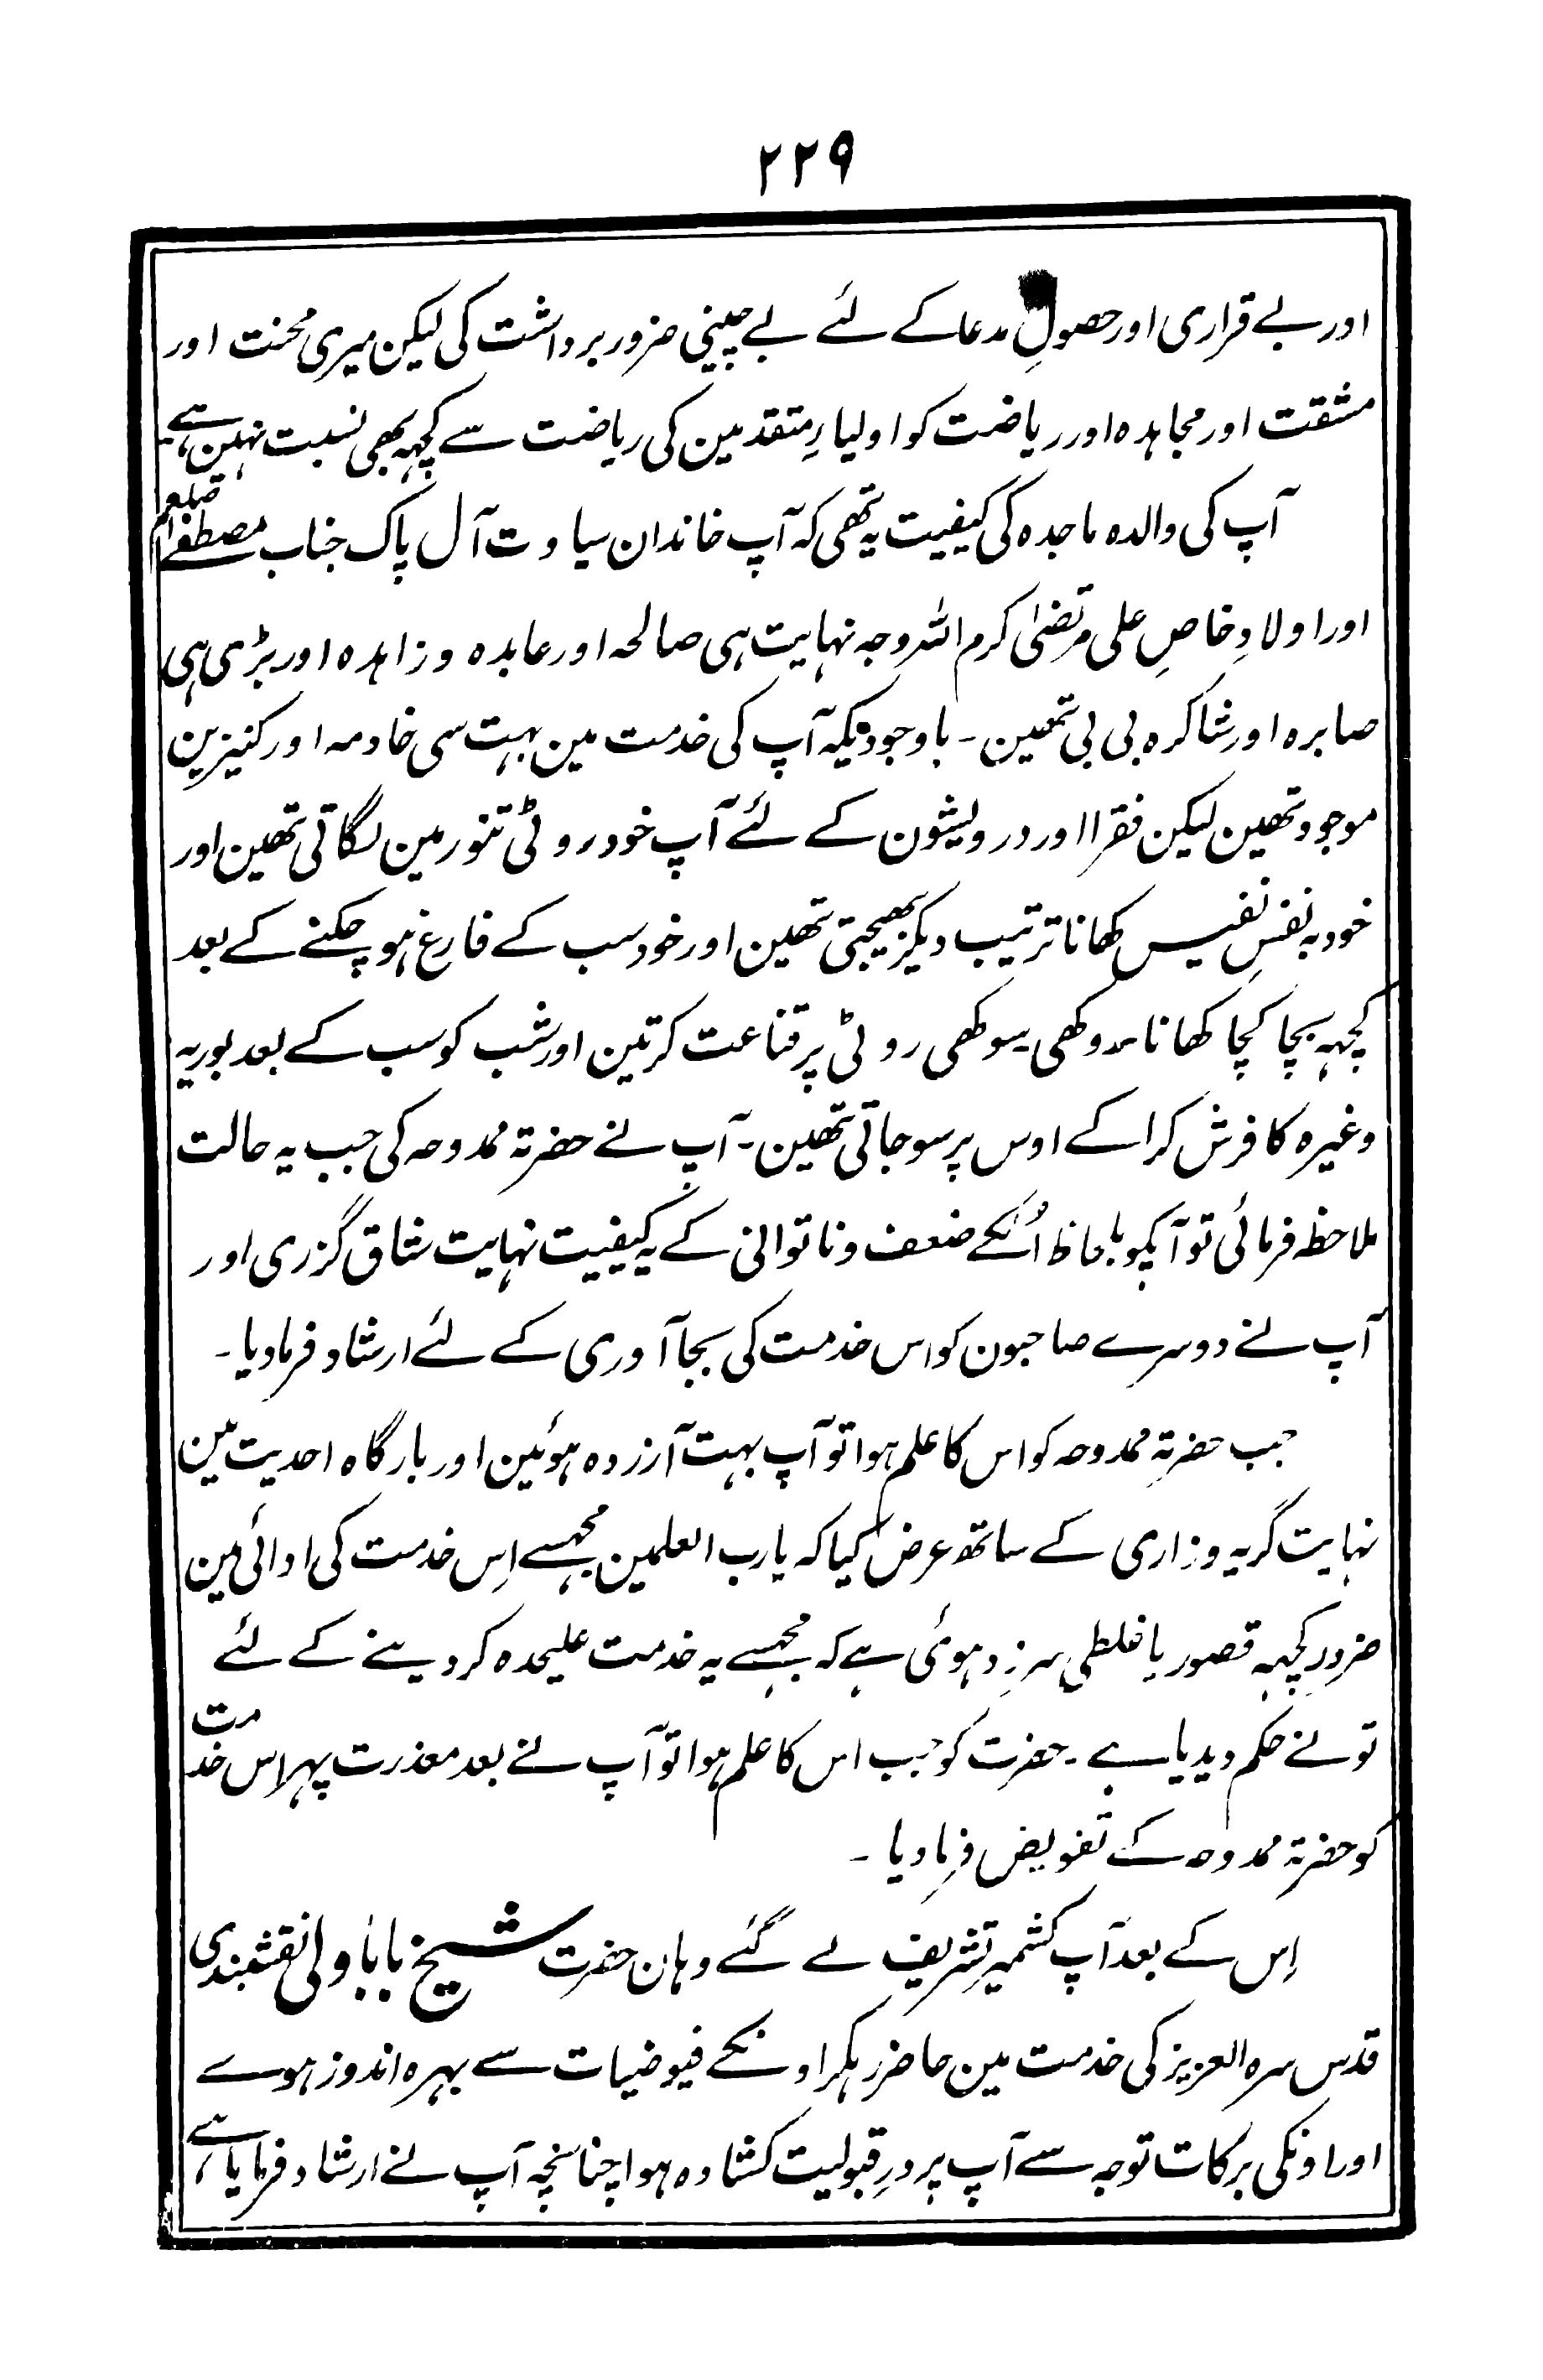 ۲۲۹
اور بے قراری اور حصولِ مدعا کے لئے بے چینی ضرور برداشت کی لیکن میری محنت اور
مشقت اور مجاہدہ اور ریاضت کو اولیاءِ متقدمین کی ریاضت سے کچہہ بھی نسبت نہین ہے۔
آپ کی والدہ ماجدہ کی کیفیت یہ تھی کہ آپ خاندان سیادت آل پاک جناب مصطفےٰ صلعم
اور اولادِ خاصِ علی مرتضیٰ کرم اللہ وجہ نہایت ہی صالحہ اور عابدہ و زاہدہ اور بڑی ہی
صابرہ اور شاکرہ بی بی تھین۔ باوجودیکہ آپ کی خدمت مین بہت سی خادمہ اور کنیزین
موجود تھین لیکن فقرا اور درویشون کے لئے آپ خود روٹی تنور مین لگاتی تھین اور
خود بہ نفسِ نفیس کھانا ترتیب دیکر بھیجتی تھین اور خود سب کے فارغ ہو چکنے کے بعد
کچہہ بچا کچا کھانا روکھی سوکھی روٹی پر قناعت کرتین اور شب کو سب کے بعد بوریہ
وغیرہ کا فرش کرا کے اوس پر سو جاتی تھین۔ آپ نے حضرتہ ممدوحہ کی جب یہ حالت
ملاحظہ فرمائی تو آپکو بلحاظ اُنکے ضعف و ناتوانی کے یہ کیفیت نہایت شاق گزری اور
آپ نے دوسرے صاحبون کو اس خدمت کی بجا آوری کے لئے ارشاد فرما دیا۔
جب حضرتہ ممدوحہ کو اس کا علم ہوا تو آپ بہت آرزدہ ہوئین اور بارگاہ احدیت مین
نہایت گریہ و زاری کے ساتھ عرض کیا کہ یا رب العلمین مجہسے اِس خدمت کی ادائی مین
ضرور کچہہ قصور یا غلطی سرزد ہوئی ہے کہ مجہسے یہ خدمت علیحدہ کر دینے کے لئے
تو نے حکم دیدیا ہے۔ حضرت کو جب اس کا علم ہوا تو آپ نے بعد معذرت پہر اس خدمت
کو حضرتہ ممدوحہ کے تفویض فرما دیا۔
اِس کے بعد آپ کشمیر تشریف لے گئے وہان حضرت شیخ بابا والی نقشبندی
قدس سرہ العزیز کی خدمت مین حاضر رہکر اونکے فیوضیات سے بہرہ اندوز ہوے
اور اونکی برکات توجہ سے آپ پر درِ قبولیت کشادہ ہوا چنانچہ آپ نے ارشاد فرمایا ہے،